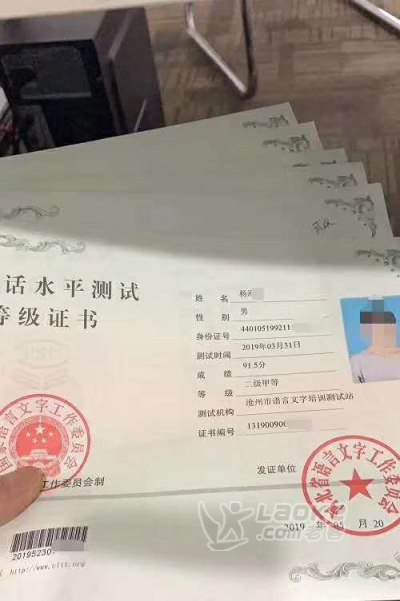 话水平测试
等级证书
姓 名 杨
性 别 男
身份证号 440105199211
测试时间 2019年03月31日
成 绩 91.5分
等 级 二级甲等
测试机构 沧州市语言文字培训测试站
证书编号 131900900
国家语言文字工作委员会
发证单位
河北省语言文字工作委员会
工作委员会制
2019 年 05 月 20
20195230
http://www.cltt.org